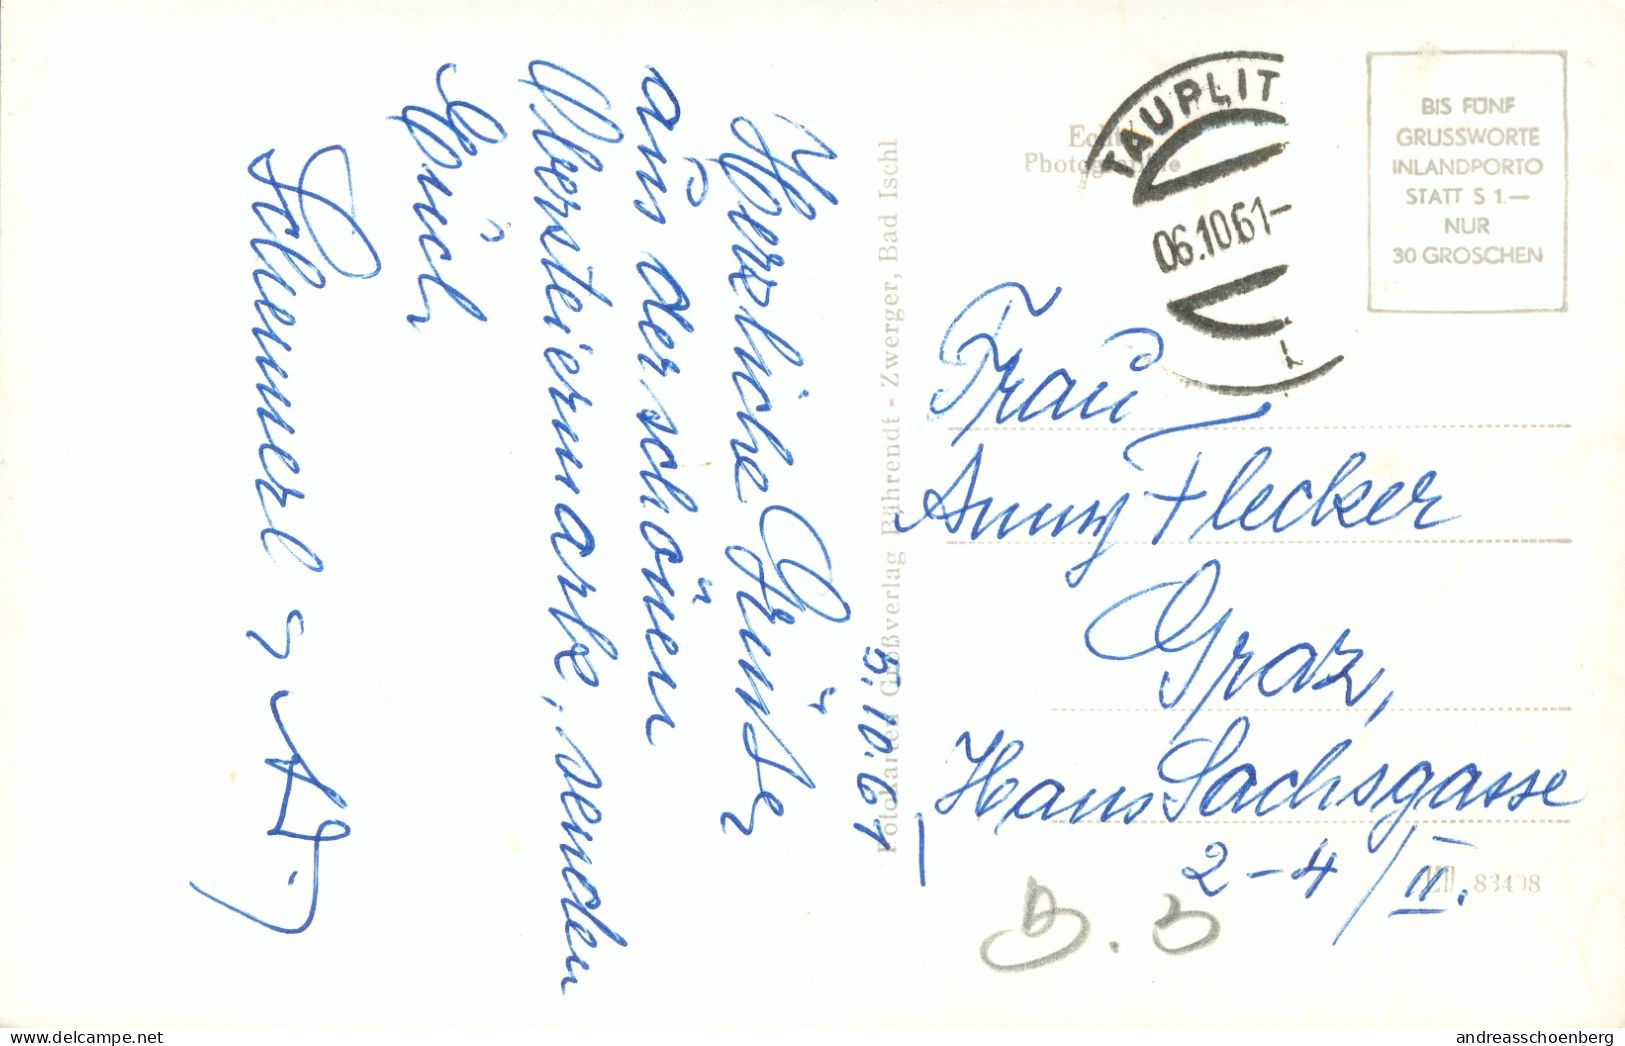 5.10.61
Herzliche Grüße
aus der schönen
Obersteiermark, senden
Euch
Fotokarten Großverlag Bährendt - Zwerger, Bad Ischl
Echte
Photographie
TAUPLIT
06.10.61-
BIS FÜNF
GRUSSWORTE
INLANDPORTO
STATT S 1.—
NUR
30 GROSCHEN
Frau
Anny Flecker
Graz,
Hans Sachsgasse
2-4/II.
83408
www.delcampe.net
andreasschoenberg